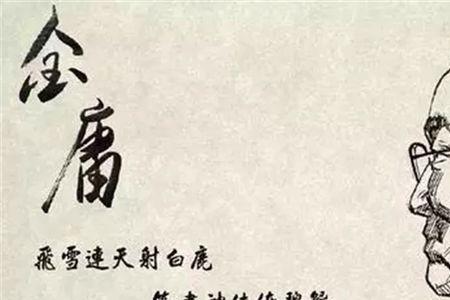 金庸
飛雪連天射白鹿